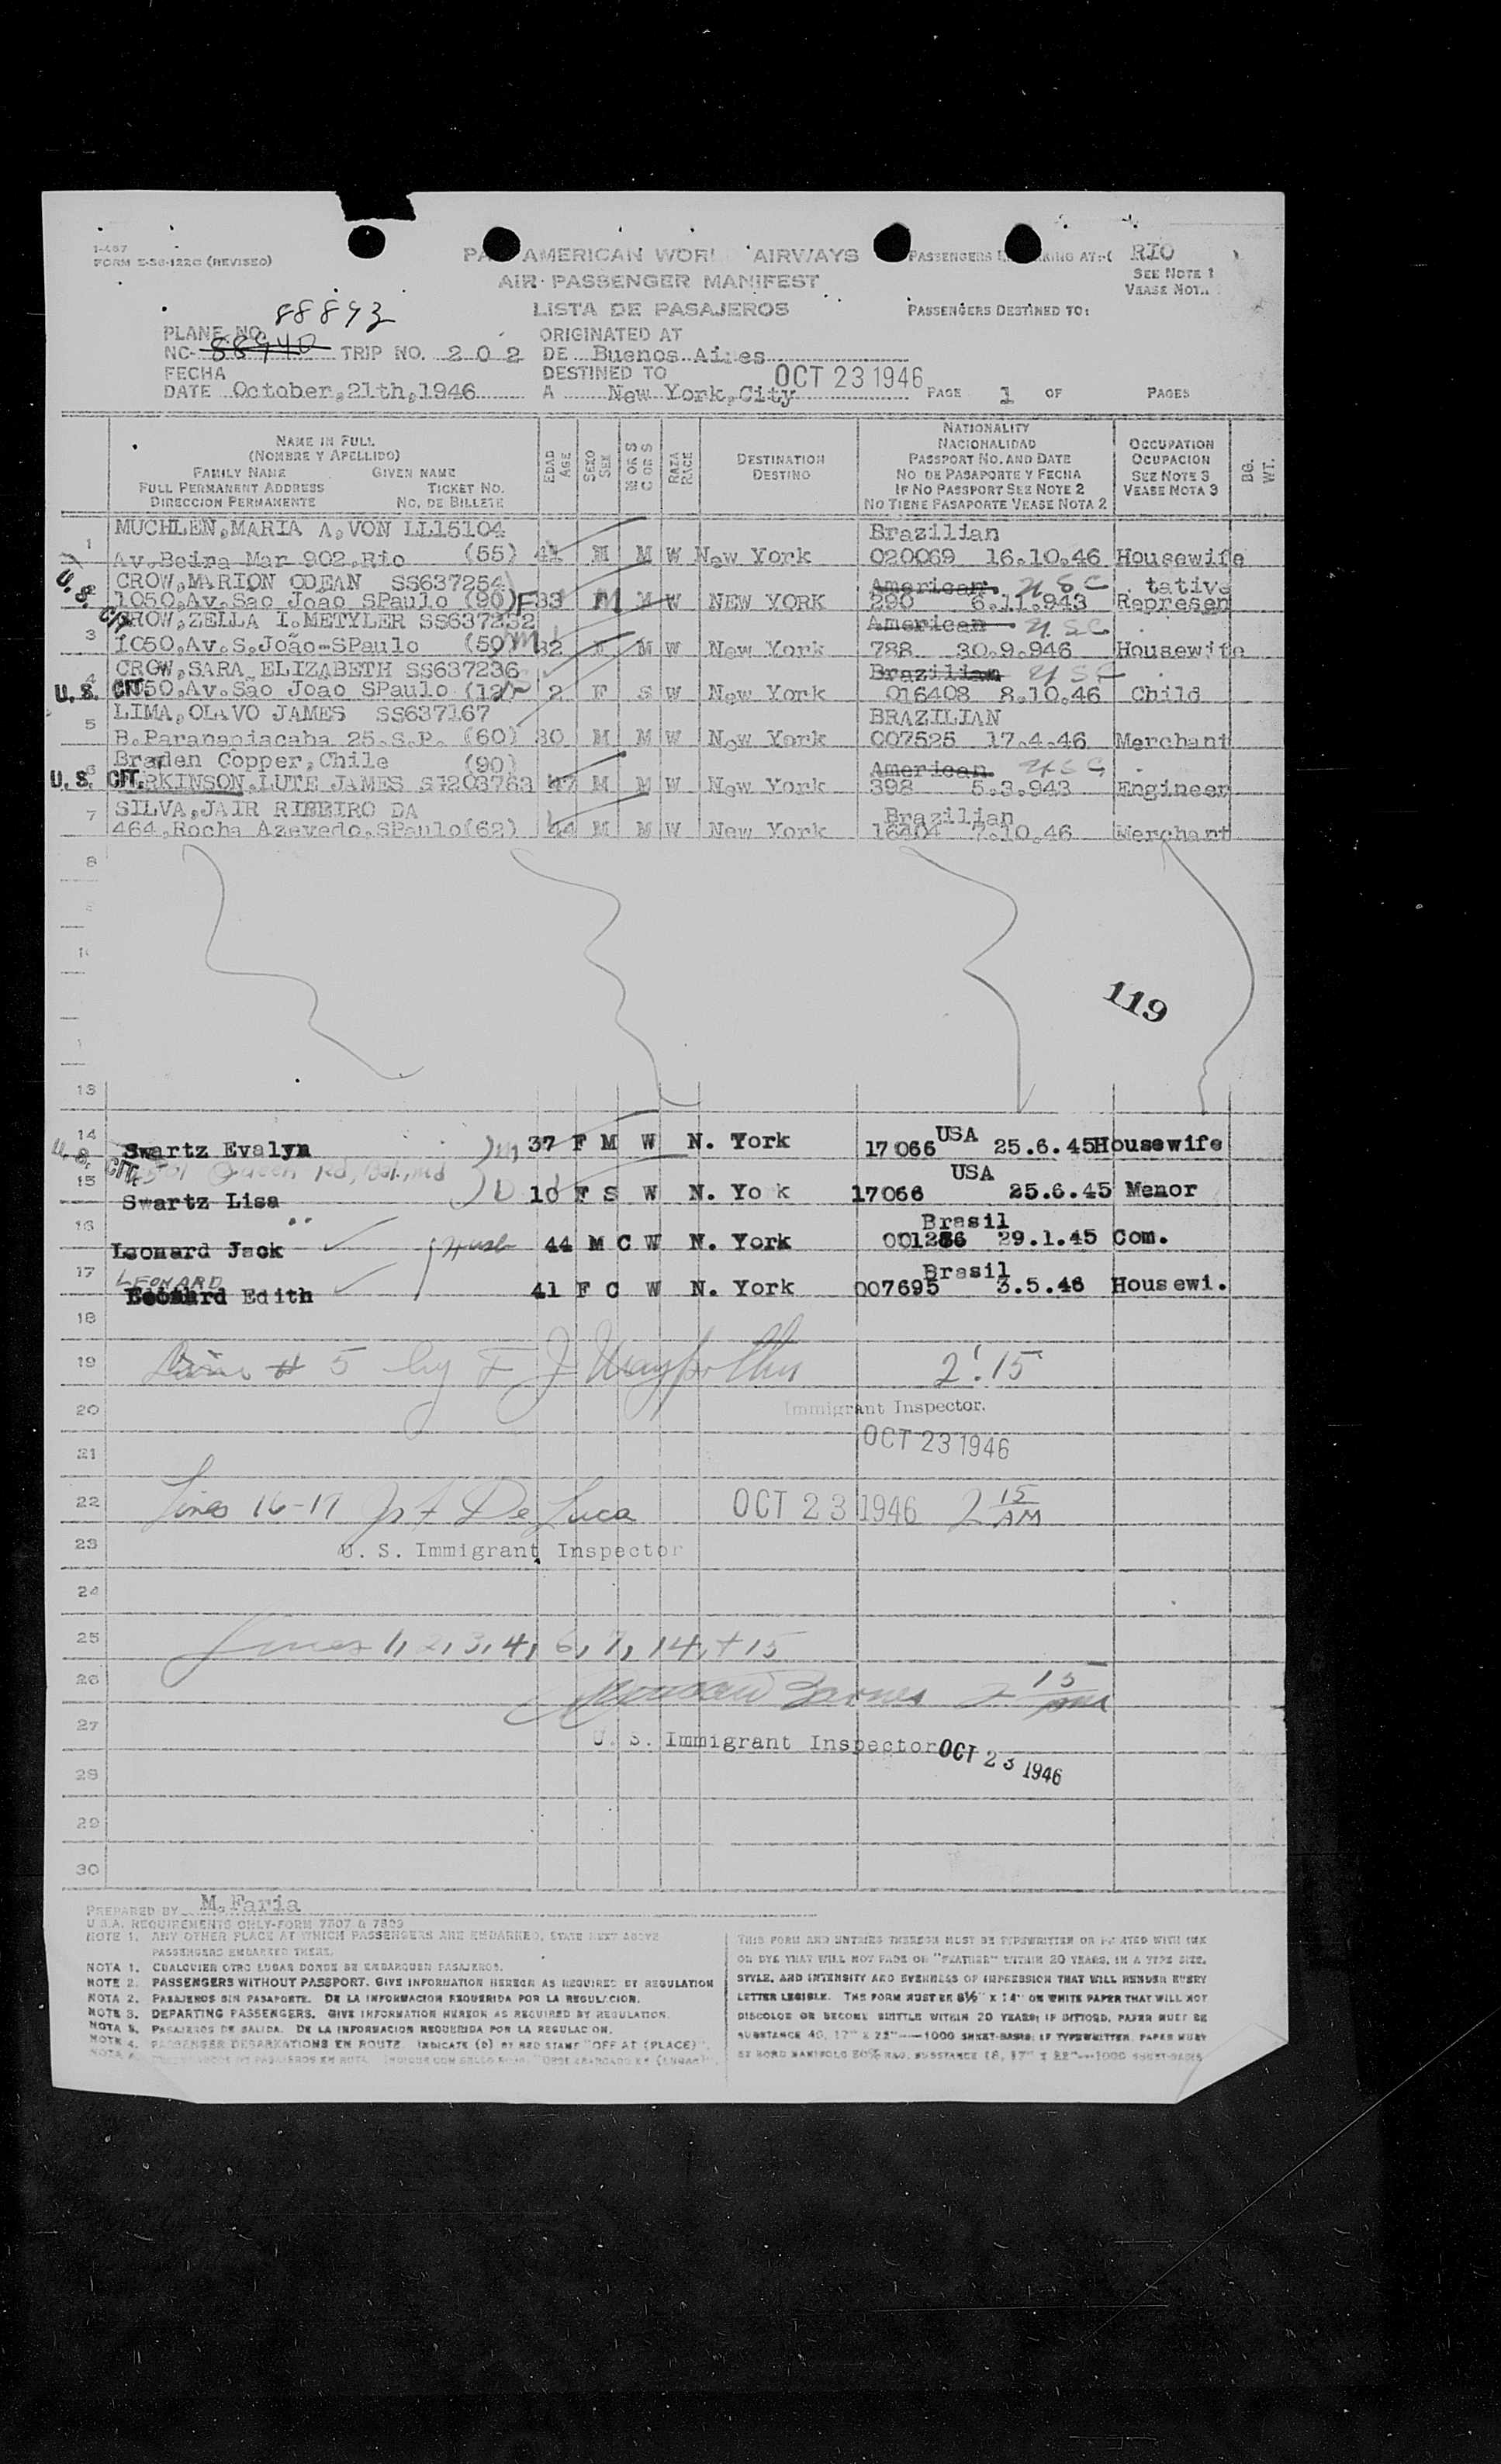 I-467
FORM E-36-122G (REVISED)
AMERICAN AIRWAYS
AIR PASSENGER MANIFEST
LISTA DE PASAJEROS
PASSENGERS AT:( RIO )
SEE NOTE 1
VEASE NOTA
PASSENGERS DESTINED TO:
88893
PLANE NO.
NC- 88940 TRIP NO. 202
ORIGINATED AT
DE Buenos Aires
FECHA
DATE October,21th,1946
DESTINED TO
A New York,City
OCT 23 1946
PAGE 1 OF PAGES
NAME IN FULL
(NOMBRE Y APELLIDO)
FAMILY NAME GIVEN NAME
FULL PERMANENT ADDRESS TICKET NO.
DIRECCION PERMANENTE NO. DE BILLETE
EDAD AGE
SEXO SEX
M OR S
C OR S
RAZA RACE
DESTINATION
DESTINO
NATIONALITY
NACIONALIDAD
PASSPORT NO. AND DATE
NO. DE PASAPORTE Y FECHA
IF NO PASSPORT SEE NOTE 2
NO TIENE PASAPORTE VEASE NOTA 2
OCCUPATION
OCUPACION
SEE NOTE 3
VEASE NOTA 3
BG. WT.
MUCHLEN,MARIA A,VON LL15104 Brazilian
1 Av.Beira Mar 902.Rio (55) M W New York 020069 16.10.46 Housewife
U. S. CIT.
CROW,MARION ODEAN SS637254 American. USC tative
1050,Av.Sao Joao SPaulo (90) F 33 M M W NEW YORK 290 6.11.943 Represen
CROW,ZELLA I.METYLER SS637232 American USC
3 1050,Av.S.João-SPaulo (50) m 32 F M W New York 788 30.9.946 Housewife
4 CROW,SARA ELIZABETH SS637236 Brazilian USC
U. S. CIT. 50,Av.Sao Joao SPaulo 2 F S W New York 016408 8.10.46 Child
5 LIMA,OLAVO JAMES SS637167 BRAZILIAN
B.Paranapiacaba 25.S.P. (60) 30 M M W New York 007525 17.4.46 Merchant
6 Braden Copper,Chile (90) American USC
U. S. CIT. RKINSON,LUTE JAMES 47 M M W New York 398 5.3.943 Engineer
7 SILVA,JAIR RIBEIRO DA Brazilian
464,Rocha Azevedo,SPaulo(62) 44 M M W New York 16404 7.10.46 Merchant
8
119
13
14 Swartz Evalyn 37 F M W N. York 17066 USA 25.6.45 Housewife
U. S. CIT. Queen Rd,
15 Swartz Lisa 10 F S W N. Yo k 17066 USA 25.6.45 Menor
16 Leonard Jack 44 M C W N. York 001286 Brasil 29.1.45 Com.
LEONARD
17 Edith 41 F C W N. York 007695 Brasil 3.5.46 Housewi.
18
19 # 5 by F J 2:15
20 Immigrant Inspector.
OCT 23 1946
21
22 Lines 16-17 De Luca OCT 23 1946 2 15 AM
23 U. S. Immigrant Inspector
24
25 Lines 1, 2, 3, 4, 6, 7, 14, + 15
26 2 15
27 U. S. Immigrant Inspector OCT 23 1946
28
29
30
PREPARED BY M.Faria
U.S.A. REQUIREMENTS ONLY-FORM 7507 & 7509
NOTE 1. ANY OTHER PLACE AT WHICH PASSENGERS ARE EMBARKED, STATE NEXT ABOVE
PASSENGERS EMBARKED THERE.
NOTA 1. CUALQUIER OTRO LUGAR DONDE SE EMBARQUEN PASAJEROS.
NOTE 2. PASSENGERS WITHOUT PASSPORT. GIVE INFORMATION HEREON AS REQUIRED BY REGULATION
NOTA 2. PASAJEROS SIN PASAPORTE. DE LA INFORMACION REQUERIDA POR LA REGULACION.
NOTE 3. DEPARTING PASSENGERS. GIVE INFORMATION HEREON AS REQUIRED BY REGULATION.
NOTA 3. PASAJEROS DE SALIDA. DE LA INFORMACION REQUERIDA POR LA REGULACION.
NOTE 4. PASSENGER DEBARKATIONS EN ROUTE. INDICATE (D) BY RED STAMP "OFF AT (PLACE)".
THIS FORM AND ENTRIES THEREON MUST BE TYPEWRITTEN OR PRINTED WITH INK
OR DYE THAT WILL NOT FADE OR "FEATHER" WITHIN 20 YEARS, IN A TYPE SIZE,
STYLE, AND INTENSITY AND EVENNESS OF IMPRESSION THAT WILL RENDER EVERY
LETTER LEGIBLE. THE FORM MUST BE 8½" X 14" ON WHITE PAPER THAT WILL NOT
DISCOLOR OR BECOME BRITTLE WITHIN 20 YEARS; IF DITTOED, PAPER MUST BE
SUBSTANCE 40, 17" X 22"—1000 SHEET-BASIS; IF TYPEWRITTEN, PAPER MUST
BE BOND MANIFOLD 50% RAG, SUBSTANCE 18, 17" X 22"—1000 SHEET-BASIS